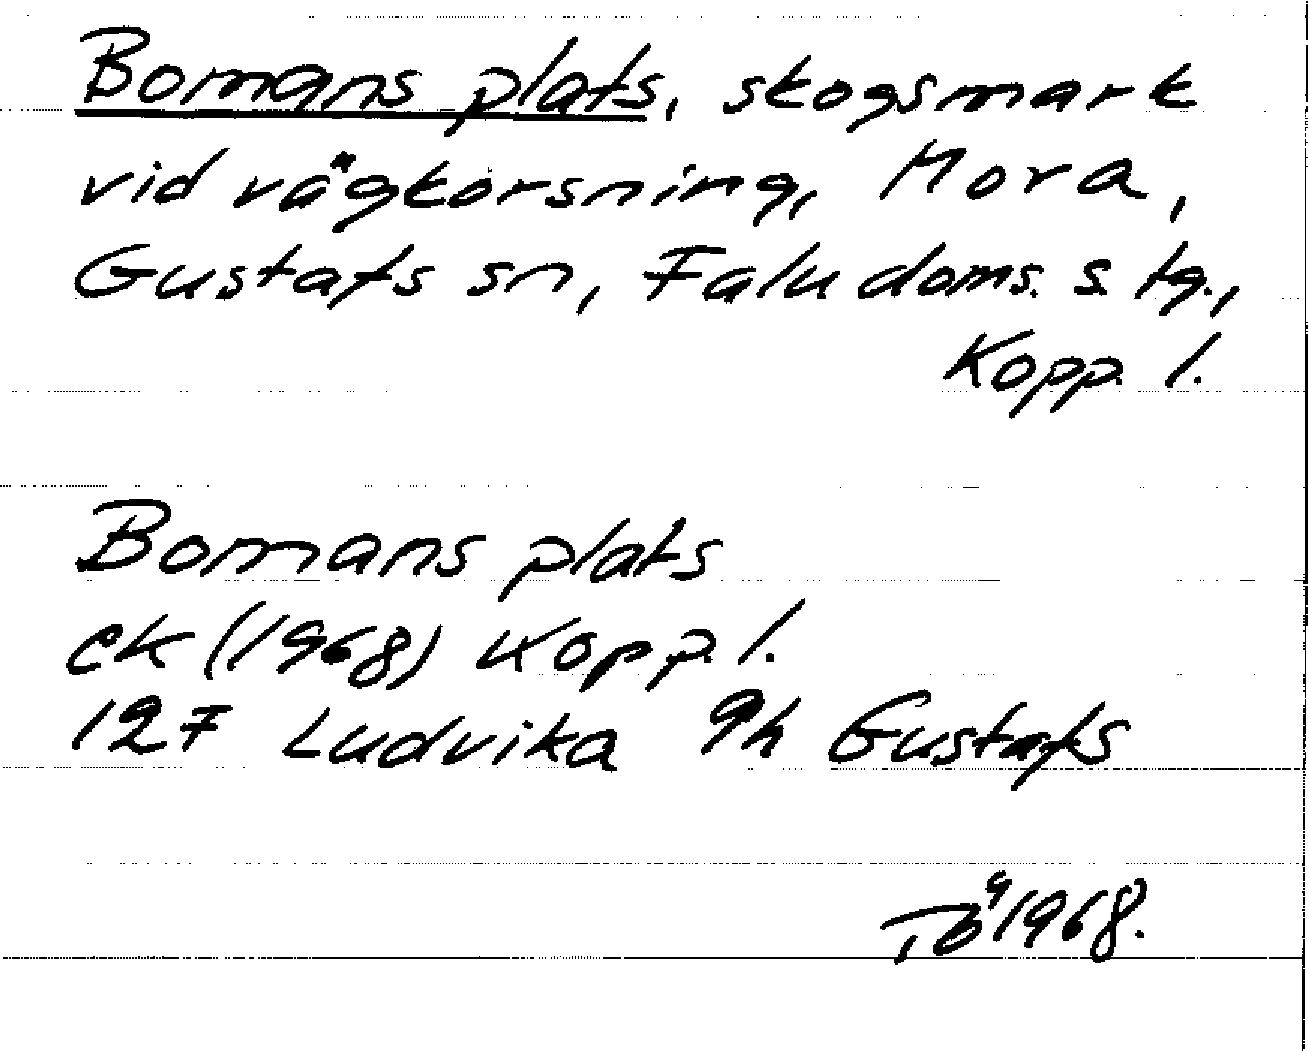 Bomans plats, skogsmark
vid vägkorsning, Mora,
Gustafs sn, Falu doms. s. tg.,
Kopp. l.
Bomans plats
ek (1968) Kopp. l.
12F Ludvika 9h Gustafs
1968.